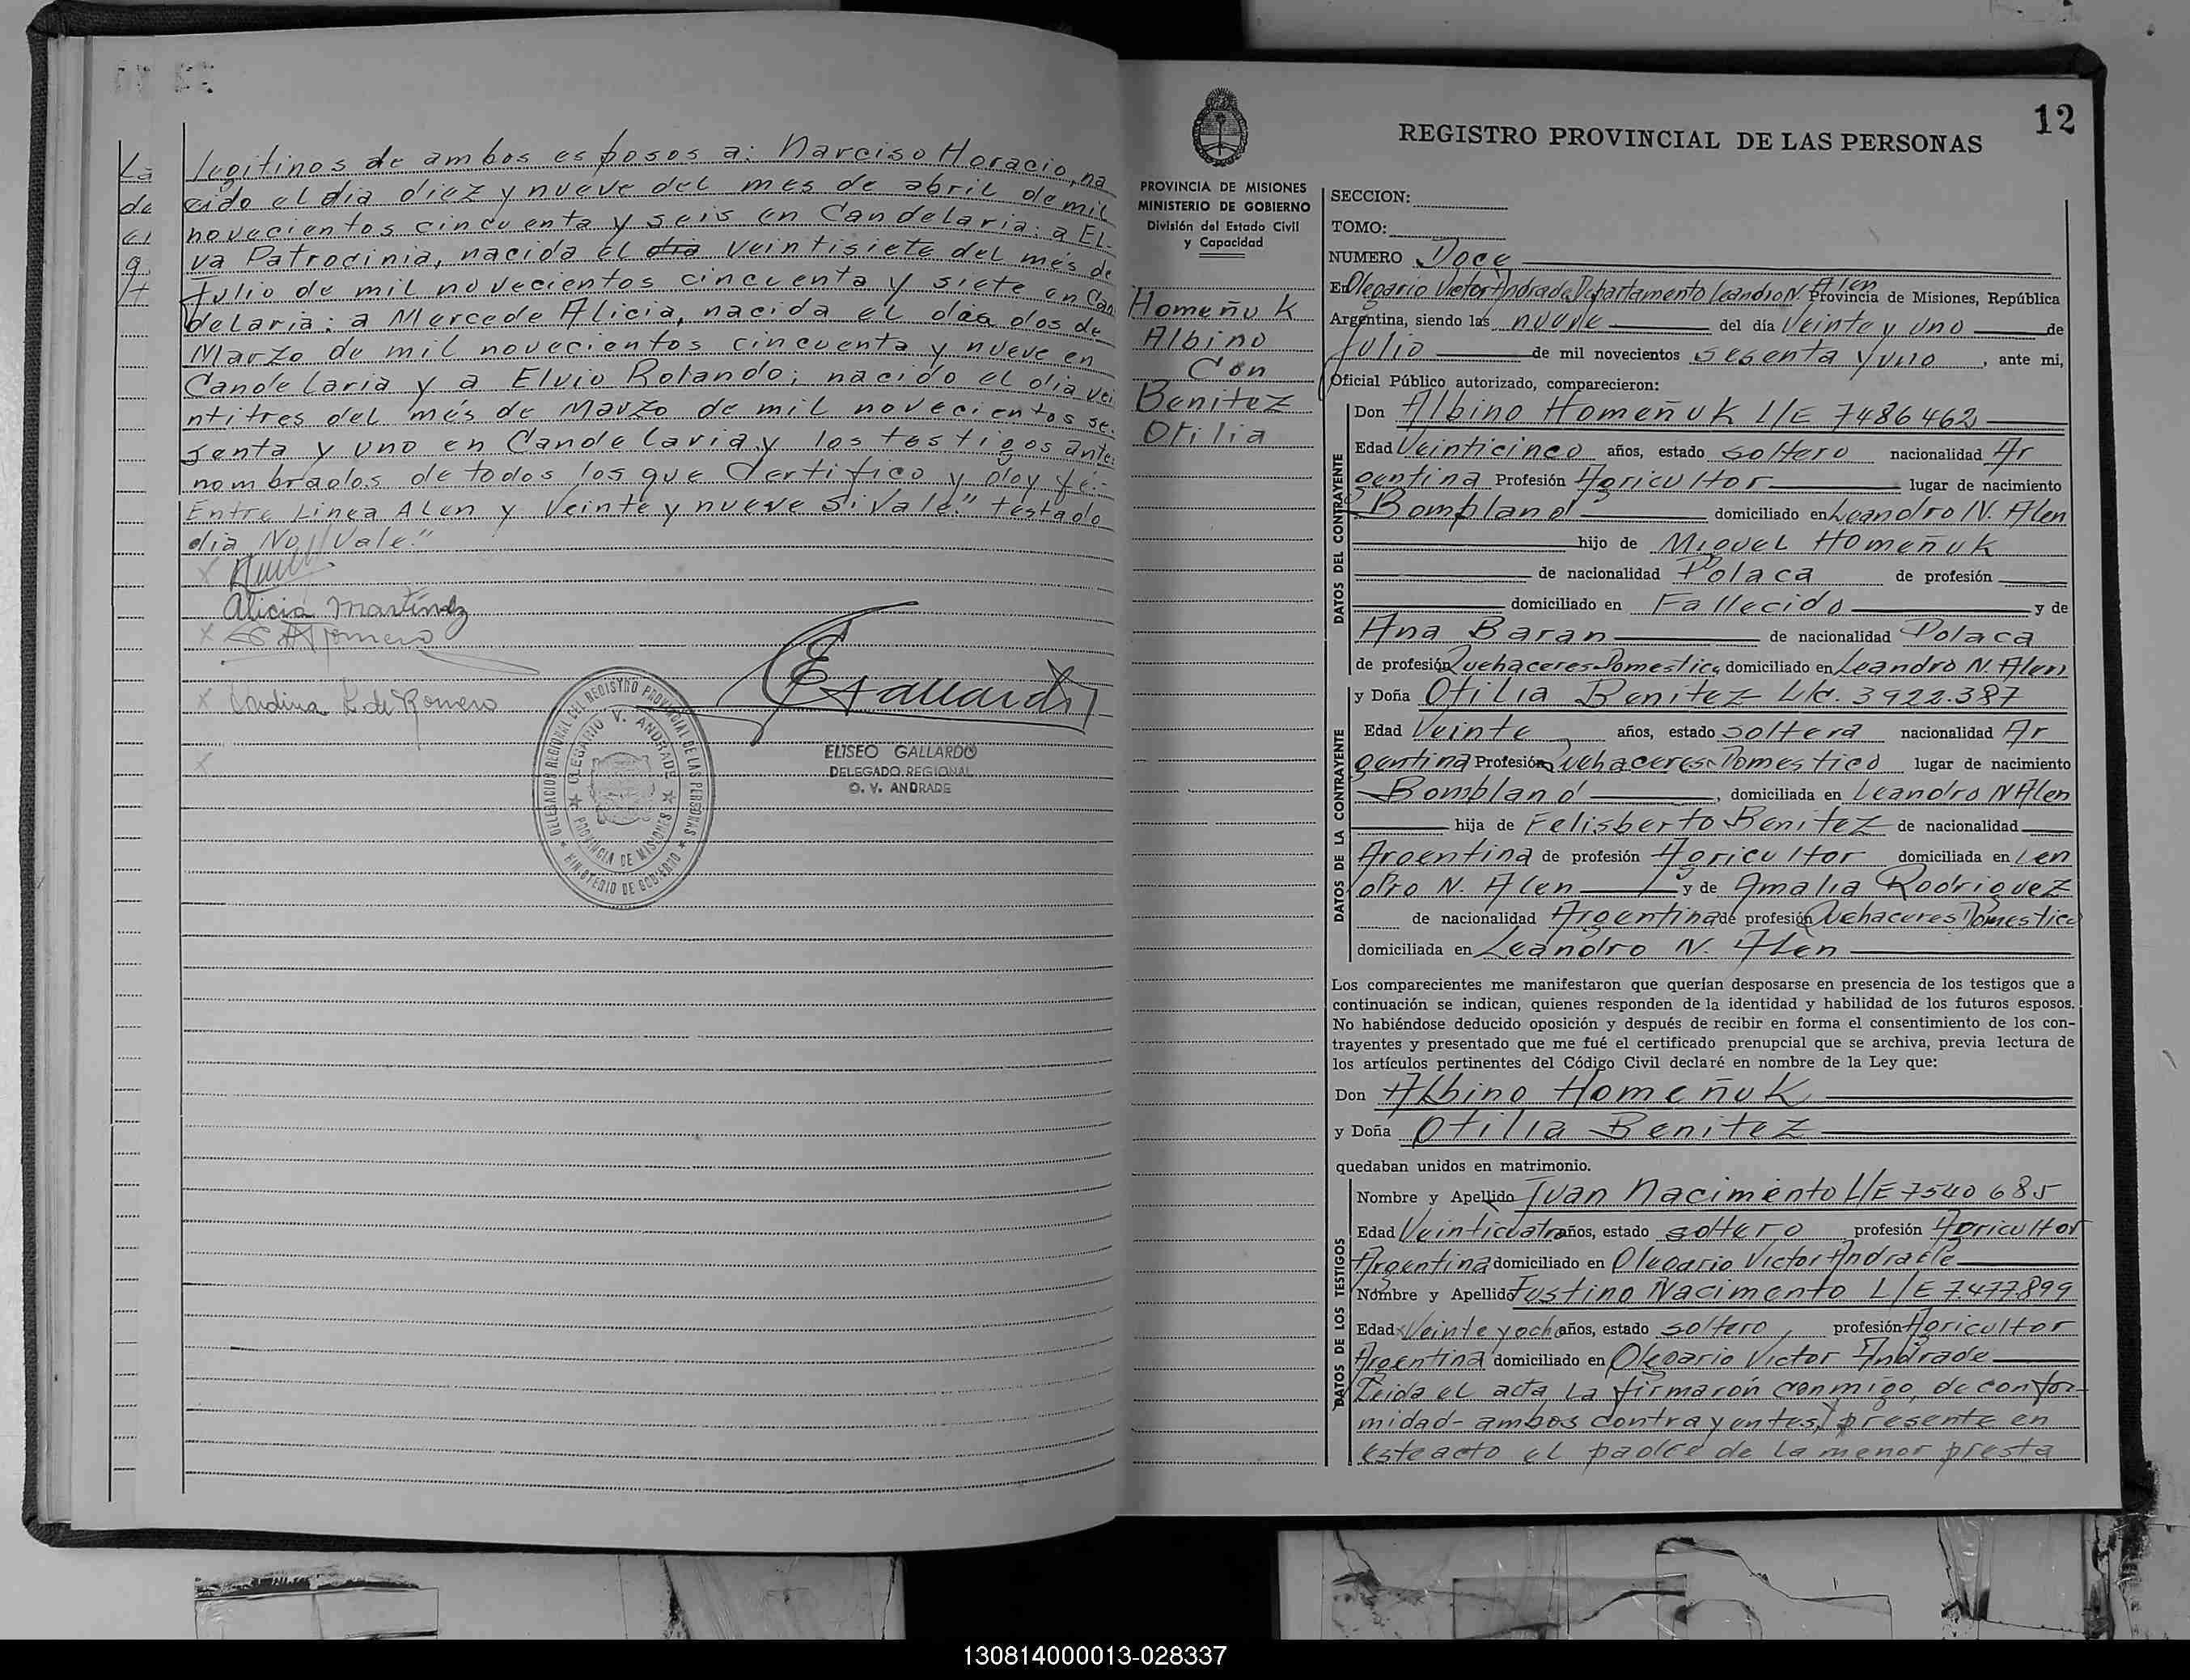 La
de
el
legitinos de ambos esposos a: Narciso Horacio, na
cido el dia diez y nueve del mes de abril de mil
novecientos cincuenta y seis en Candelaria: a El-
va Patrocinia, nacida el dia veintisiete del més de
Julio de mil novecientos cincuenta y siete en Can
delaria: a Mercede Alicia, nacida el dia dos de
Marzo de mil novecientos cincuenta y nueve en
Candelaria y a Elvio Rolando; nacido el dia vei
ntitres del més de Marzo de mil novecientos se-
senta y uno en Candelaria y los testigos ante.
nombrados de todos los que Certifico y doy fé.-
Entre Linea Alen y Veinte y nueve Si Vale." testado
dia No Vale."
Alicia Martínez
de Romero
ELISEO GALLARDO
DELEGADO REGIONAL
O. V. ANDRADE
DELEGACION REGIONAL DEL REGISTRO PROVINCIAL DE LAS PERSONAS
MINISTERIO DE GOBIERNO
OLEGARIO V. ANDRADE
PROVINCIA DE MISIONES
12
REGISTRO PROVINCIAL DE LAS PERSONAS
PROVINCIA DE MISIONES
MINISTERIO DE GOBIERNO
División del Estado Civil
y Capacidad
Homeñuk
Albino
Con
Benitez
Otilia
SECCION:
TOMO:
NUMERO Doce
En Olegario Victor Andrade Departamento Leandro N. Alen Provincia de Misiones, República
Argentina, siendo las nueve del día Veinte y uno de
Julio de mil novecientos sesenta y uno, ante mi,
Oficial Público autorizado, comparecieron:
DATOS DEL CONTRAYENTE
Don Albino Homeñuk L/E 7486462
Edad Veinticinco años, estado soltero nacionalidad Ar
gentina Profesión Agricultor lugar de nacimiento
Bompland domiciliado en Leandro N. Alen
hijo de Miguel Homeñuk
de nacionalidad Polaca de profesión
domiciliado en Fallecido y de
Ana Baran de nacionalidad Polaca
de profesión Quehaceres Domestico domiciliado en Leandro N. Alen
DATOS DE LA CONTRAYENTE
y Doña Otilia Benitez L/c. 3922.387
Edad Veinte años, estado soltera nacionalidad Ar
gentina Profesión Quehaceres Domestico lugar de nacimiento
Bompland, domiciliada en Leandro N Alen
hija de Felisberto Benitez de nacionalidad
Argentina de profesión Agricultor domiciliada en Len
dro N. Alen y de Amalia Rodriguez
de nacionalidad Argentina de profesión Quehaceres Domestico
domiciliada en Leandro N. Alen
Los comparecientes me manifestaron que querían desposarse en presencia de los testigos que a
continuación se indican, quienes responden de la identidad y habilidad de los futuros esposos.
No habiéndose deducido oposición y después de recibir en forma el consentimiento de los con-
trayentes y presentado que me fué el certificado prenupcial que se archiva, previa lectura de
los artículos pertinentes del Código Civil declaré en nombre de la Ley que:
Don Albino Homeñuk
y Doña Otilia Benitez
quedaban unidos en matrimonio.
DATOS DE LOS TESTIGOS
Nombre y Apellido Juan Nacimento L/E 7540 685
Edad Veinticuatro años, estado soltero profesión Agricultor
Argentina domiciliado en Olegario Victor Andrade
Nombre y Apellido Justino Nacimento L/E 7.477.899
Edad Veinte y ocho años, estado soltero, profesión Agricultor
Argentina domiciliado en Olegario Victor Andrade
Leida el acta la firmarón conmigo, de confor-
midad- ambos contrayentes, presente en
este acto el padre de la menor presta
130814000013-028337